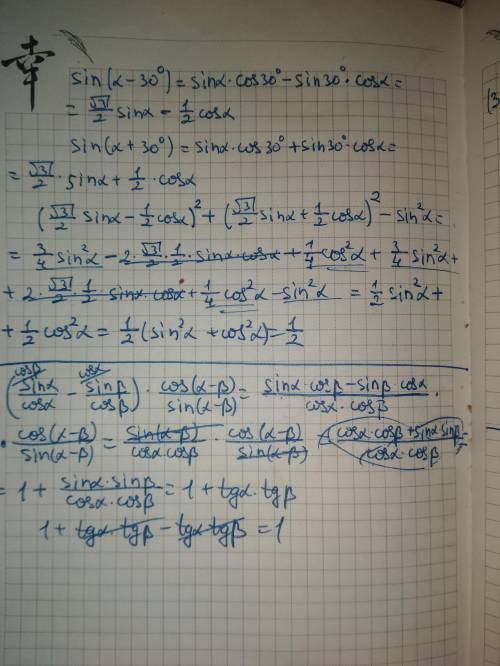 幸
sin(α-30°) = sinα·cos30° - sin30°·cosα =
= √3/2 sinα - 1/2 cosα
sin(α+30°) = sinα·cos30° + sin30°·cosα =
= √3/2 · sinα + 1/2 · cosα
(√3/2 sinα - 1/2 cosα)² + (√3/2 sinα + 1/2 cosα)² - sin²α =
= 3/4 sin²α - 2·√3/2·1/2·sinα cosα + 1/4 cos²α + 3/4 sin²α +
+ 2·√3/2·1/2·sinα cosα + 1/4 cos²α - sin²α = 1/2 sin²α +
+ 1/2 cos²α = 1/2 (sin²α + cos²α) = 1/2
(cosβ sinα/cosα - cosα sinβ/cosβ) · cos(α-β)/sin(α-β) = sinα·cosβ - sinβ·cosα/cosα·cosβ ·
· cos(α-β)/sin(α-β) = sin(α-β)/cosα cosβ · cos(α-β)/sin(α-β) = cosα·cosβ + sinα·sinβ/cosα·cosβ =
= 1 + sinα·sinβ/cosα·cosβ = 1 + tgα·tgβ
1 + tgα·tgβ - tgα·tgβ = 1
(3